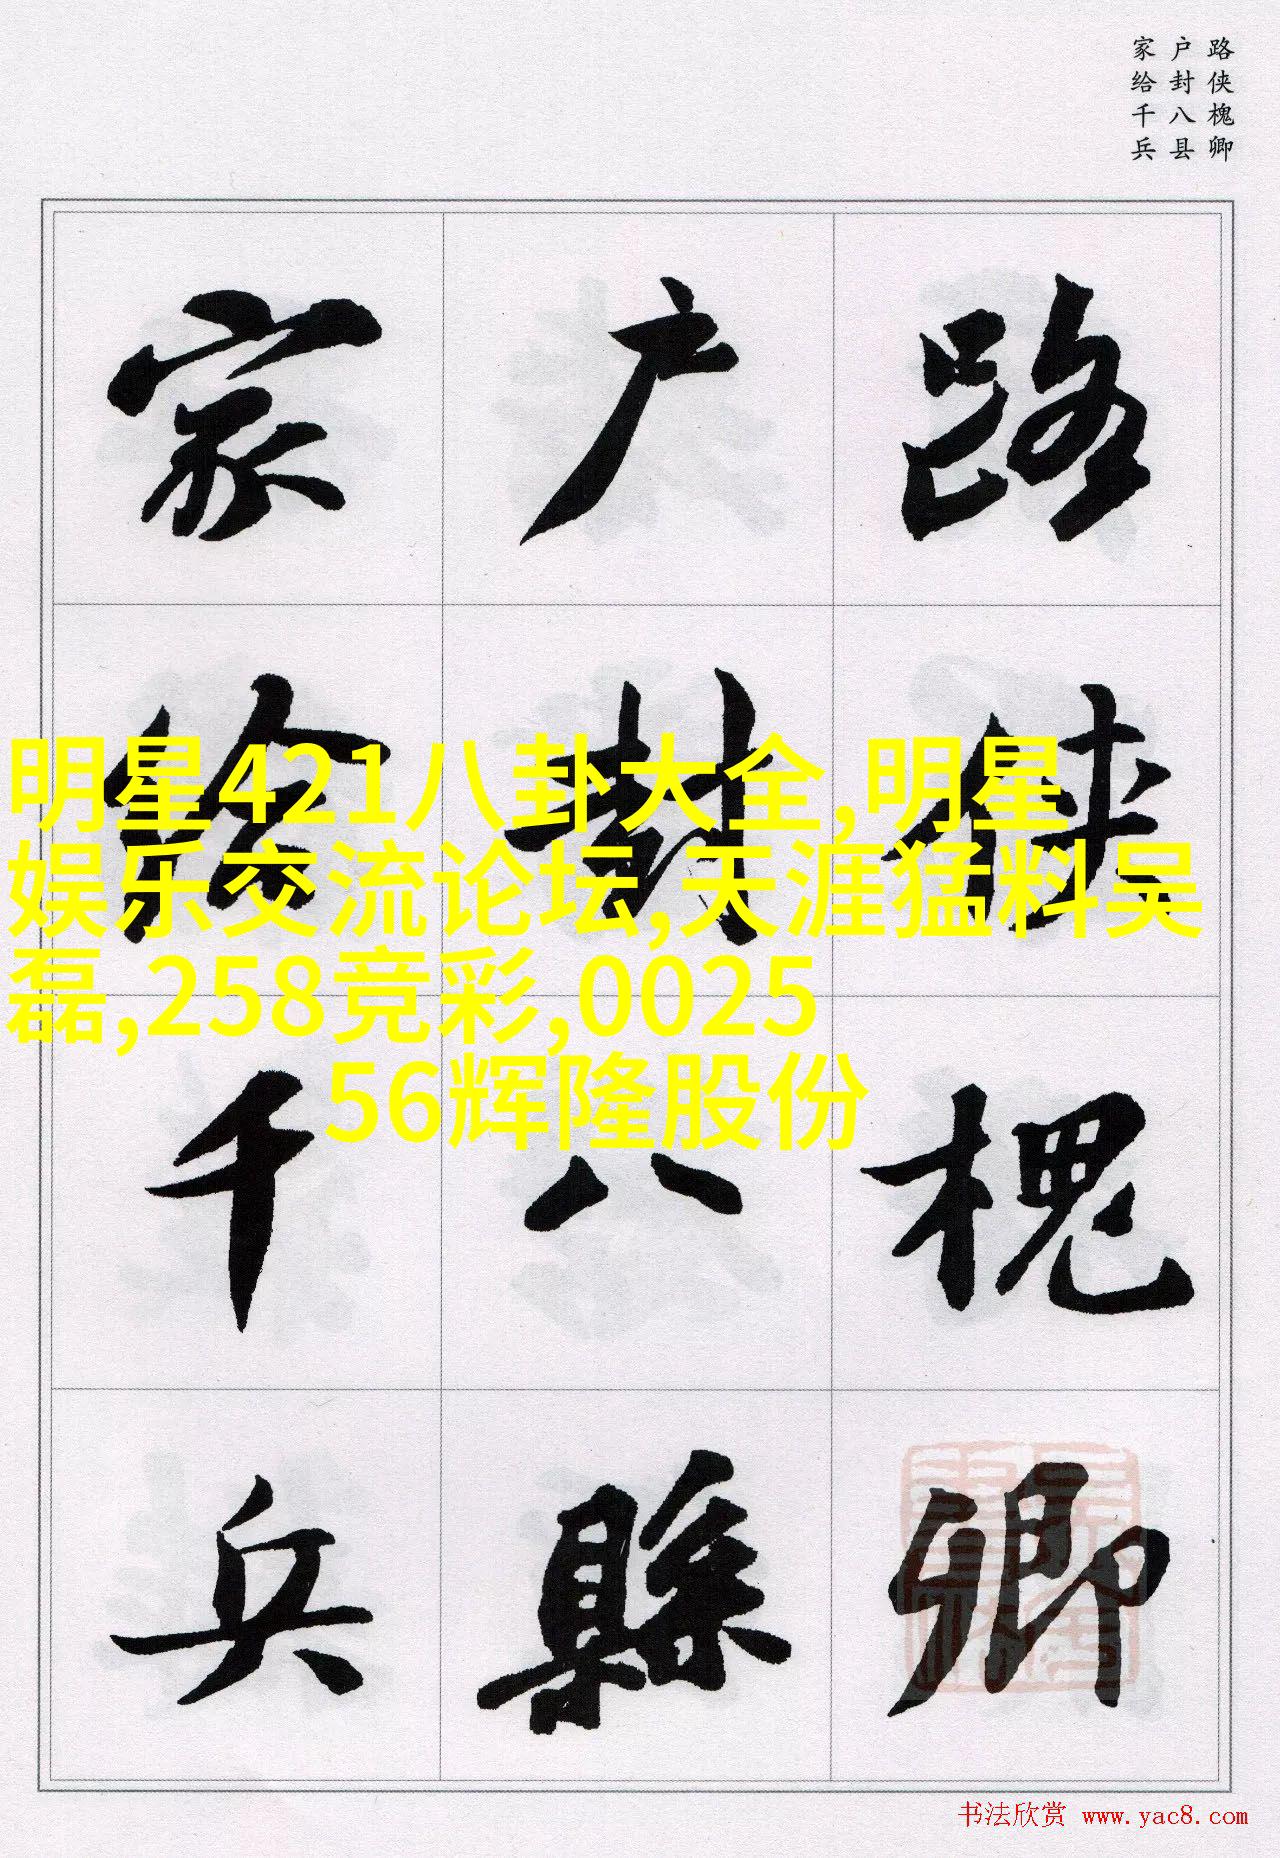 路侠槐卿
户封八县
家给千兵
路
侠
槐
卿
户
封
八
縣
家
给
千
兵
明星421八卦大全,明星
娱乐交流论坛,天涯猛料吴
磊,258竞彩,0025
56辉隆股份
书法欣赏 www.yac8.com